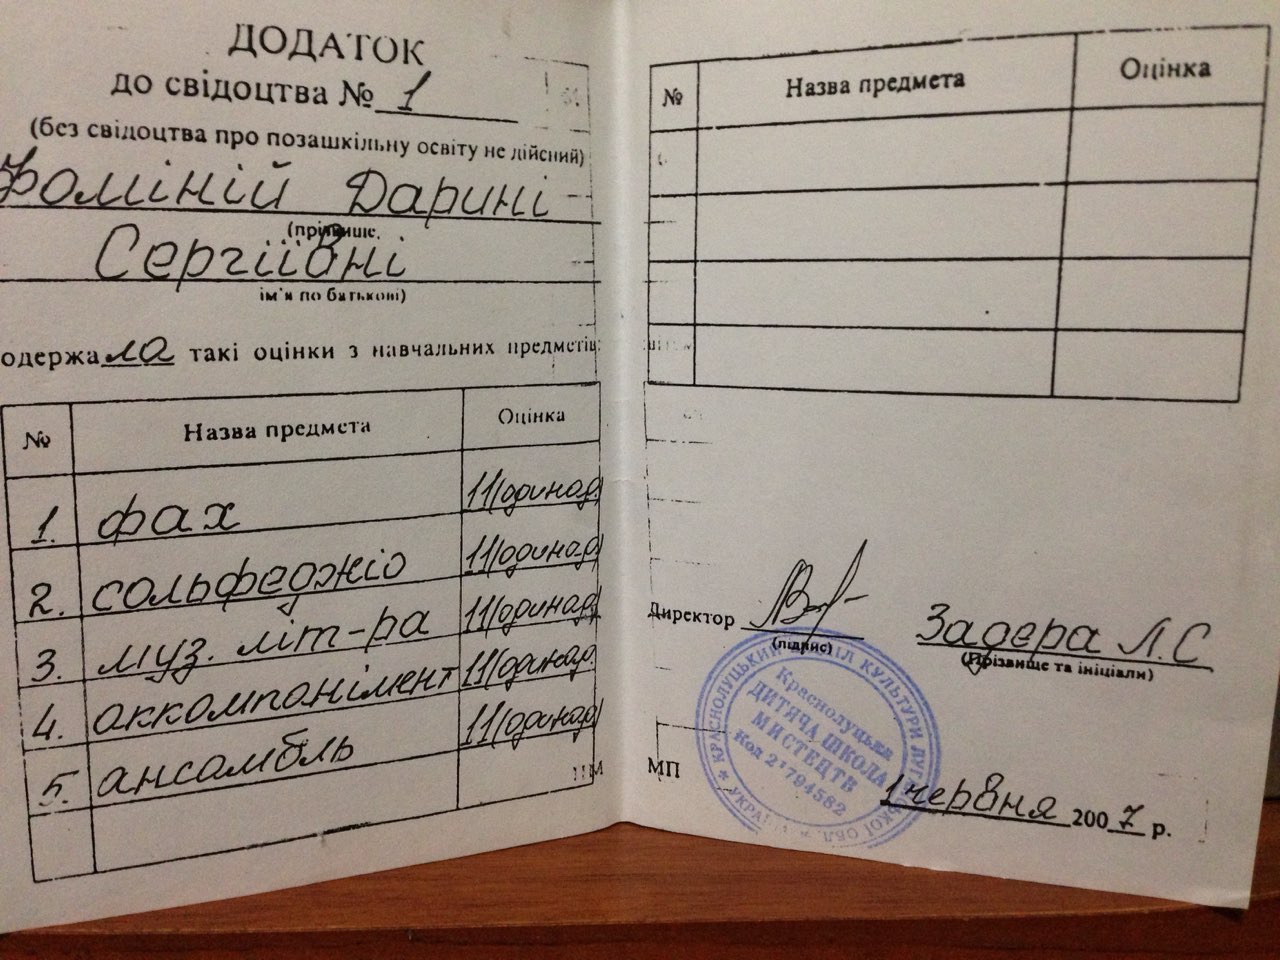 ДОДАТОК
до свідоцтва № 1
(без свідоцтва про позашкільну освіту не дійсний)
Фоміній Дарині
(прізвище,
Сергіївні
ім'я по батькові)
одержала такі оцінки з навчальних предметів:
№ Назва предмета Оцінка
1. фах 11(одинад.)
2. сольфеджіо 11(одинад)
3. муз. літ-ра 11(одинад)
4. аккомпонімент 11(одинад.
5. ансамбль 11(одинад)
№ Назва предмета Оцінка
Директор Задера Л.С
(підпис) (Прізвище та ініціали)
МП
КРАСНОЛУЦЬКИЙ ВІДДІЛ КУЛЬТУРИ
УКРАЇНА
Краснолуцька
ДИТЯЧА ШКОЛА
МИСТЕЦТВ
Код 21794582
1 червня 2007 р.